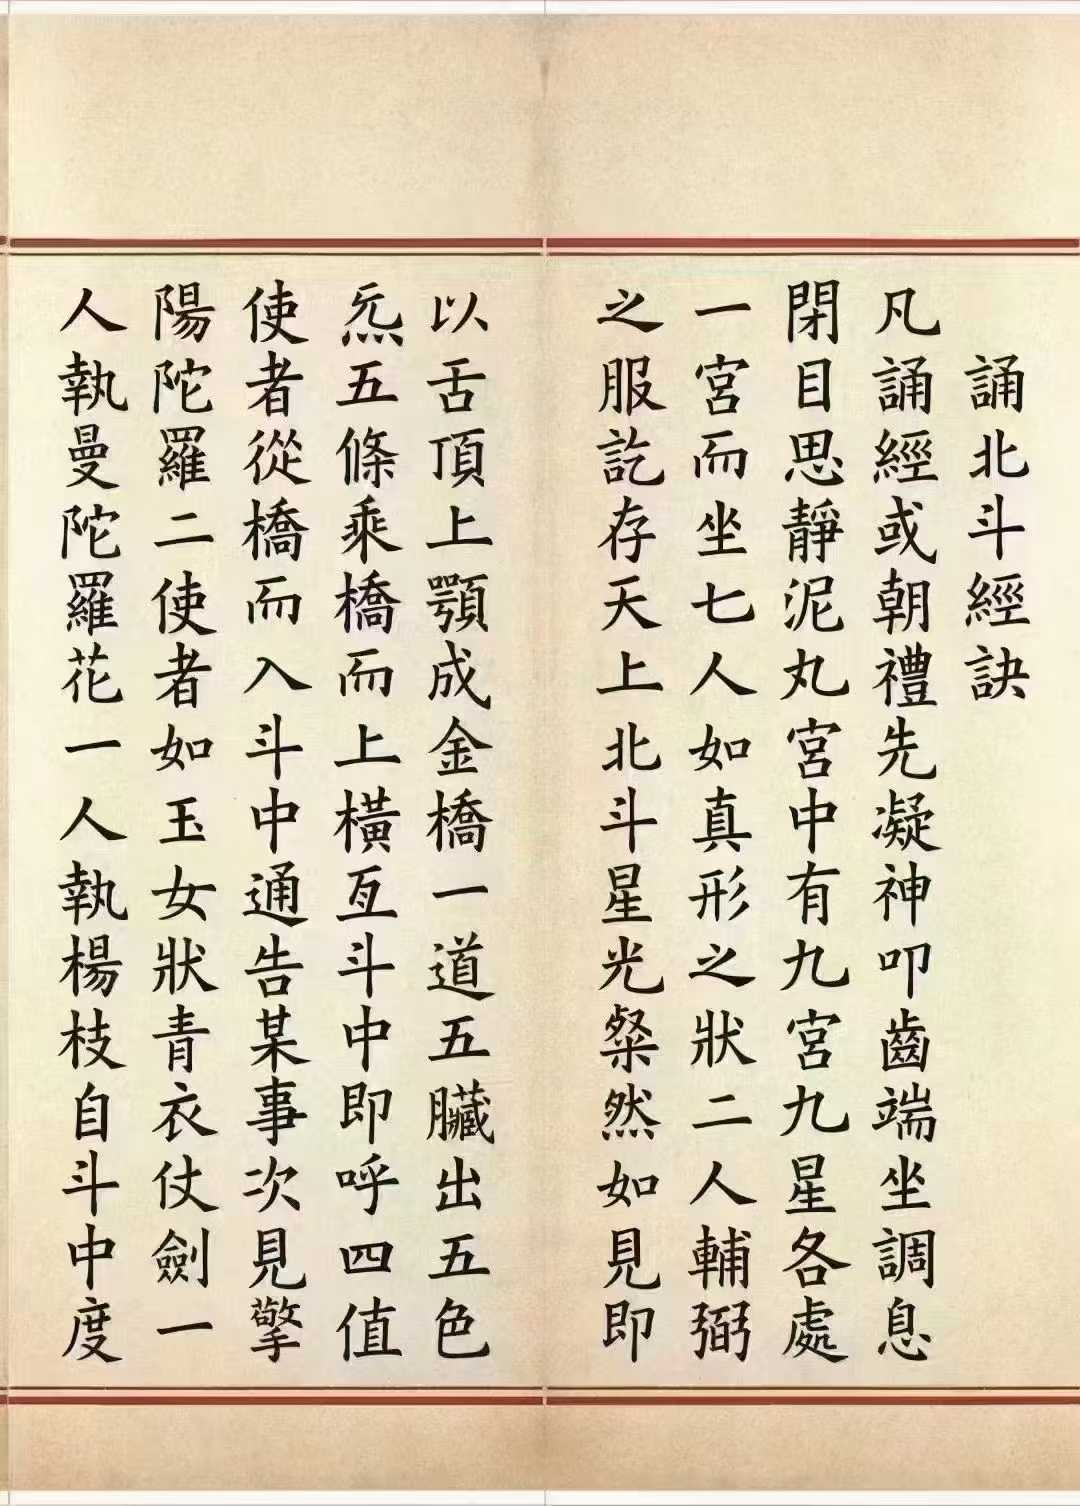 誦北斗經訣
凡誦經或朝禮先凝神叩齒端坐調息
閉目思靜泥丸宮中有九宮九星各處
一宮而坐七人如真形之狀二人輔弼
之服訖存天上北斗星光粲然如見即
以舌頂上顎成金橋一道五臟出五色
炁五條乘橋而上橫亙斗中即呼四值
使者從橋而入斗中通告某事次見擎
陽陀羅二使者如玉女狀青衣仗劍一
人執曼陀羅花一人執楊枝自斗中度